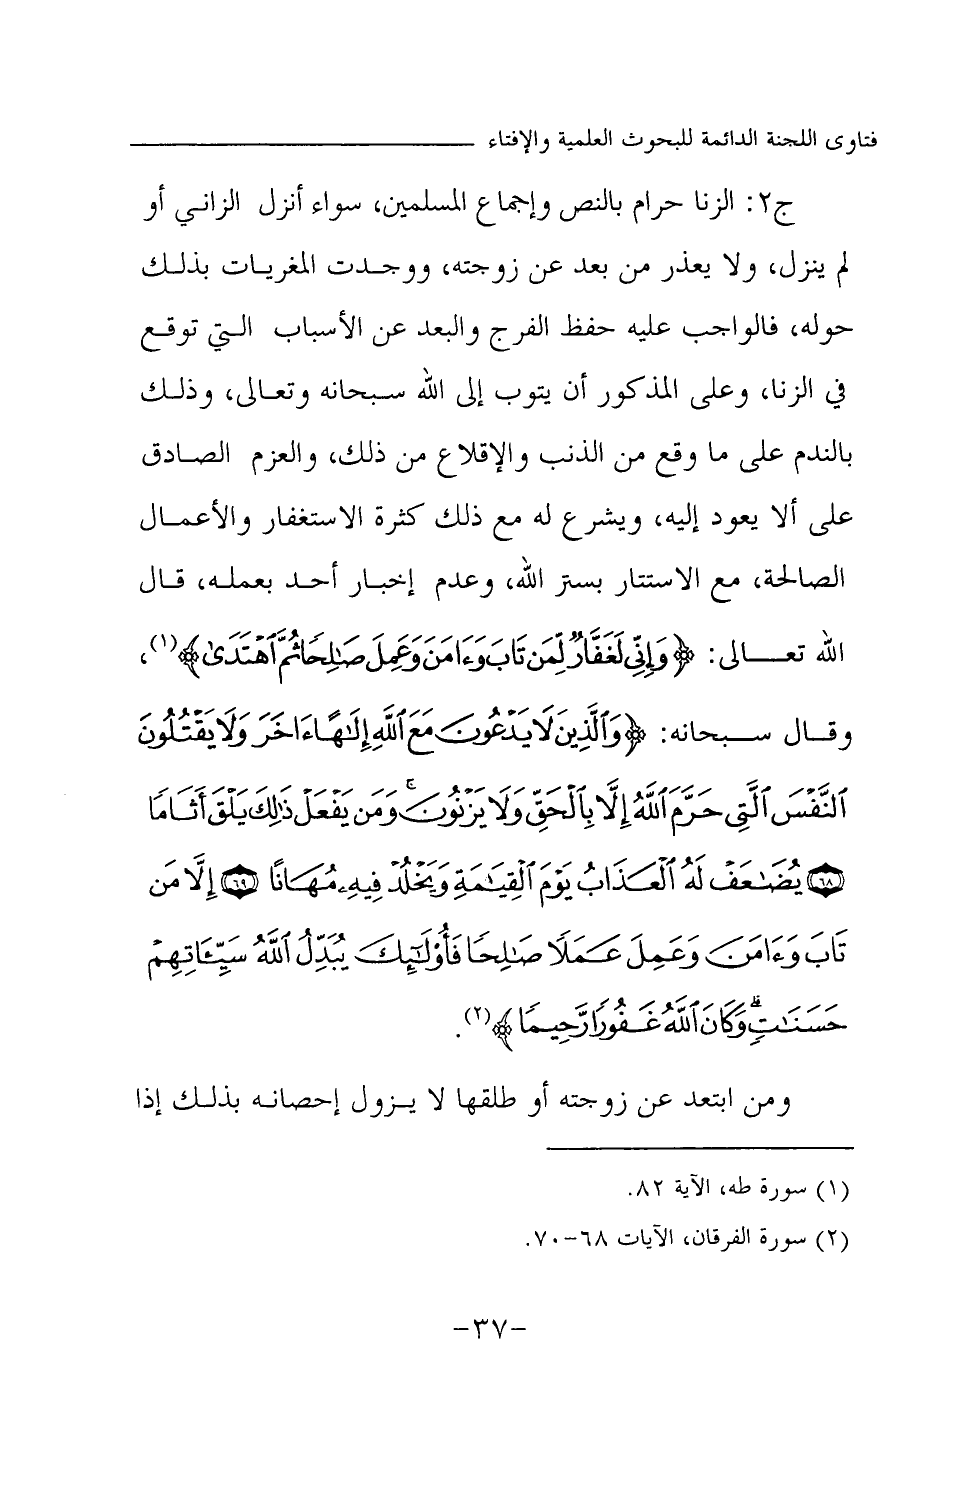 فتاوى اللجنة الدائمة للبحوث العلمية والإفتاء
ج٢: الزنا حرام بالنص وإجماع المسلمين، سواء أنزل الزاني أو
لم ينزل، ولا يعذر من بعد عن زوجته، ووجدت المغريات بذلك
حوله، فالواجب عليه حفظ الفرج والبعد عن الأسباب التي توقع
في الزنا، وعلى المذكور أن يتوب إلى الله سبحانه وتعالى، وذلك
بالندم على ما وقع من الذنب والإقلاع من ذلك، والعزم الصادق
على ألا يعود إليه، ويشرع له مع ذلك كثرة الاستغفار والأعمال
الصالحة، مع الاستتار بستر الله، وعدم إخبار أحد بعمله، قال
الله تعالى: ﴿وَإِنِّي لَغَفَّارٌ لِّمَن تَابَ وَءَامَنَ وَعَمِلَ صَٰلِحًا ثُمَّ ٱهۡتَدَىٰ﴾(١)،
وقال سبحانه: ﴿وَٱلَّذِينَ لَا يَدۡعُونَ مَعَ ٱللَّهِ إِلَٰهًا ءَاخَرَ وَلَا يَقۡتُلُونَ
ٱلنَّفۡسَ ٱلَّتِي حَرَّمَ ٱللَّهُ إِلَّا بِٱلۡحَقِّ وَلَا يَزۡنُونَۚ وَمَن يَفۡعَلۡ ذَٰلِكَ يَلۡقَ أَثَامًا
٦٨ يُضَٰعَفۡ لَهُ ٱلۡعَذَابُ يَوۡمَ ٱلۡقِيَٰمَةِ وَيَخۡلُدۡ فِيهِۦ مُهَانًا ٦٩ إِلَّا مَن
تَابَ وَءَامَنَ وَعَمِلَ عَمَلًا صَٰلِحًا فَأُوْلَٰٓئِكَ يُبَدِّلُ ٱللَّهُ سَيِّـَٔاتِهِمۡ
حَسَنَٰتٖۗ وَكَانَ ٱللَّهُ غَفُورًا رَّحِيمًا﴾(٢).
ومن ابتعد عن زوجته أو طلقها لا يزول إحصانه بذلك إذا
(١) سورة طه، الآية ٨٢.
(٢) سورة الفرقان، الآيات ٦٨-٧٠.
-٣٧-